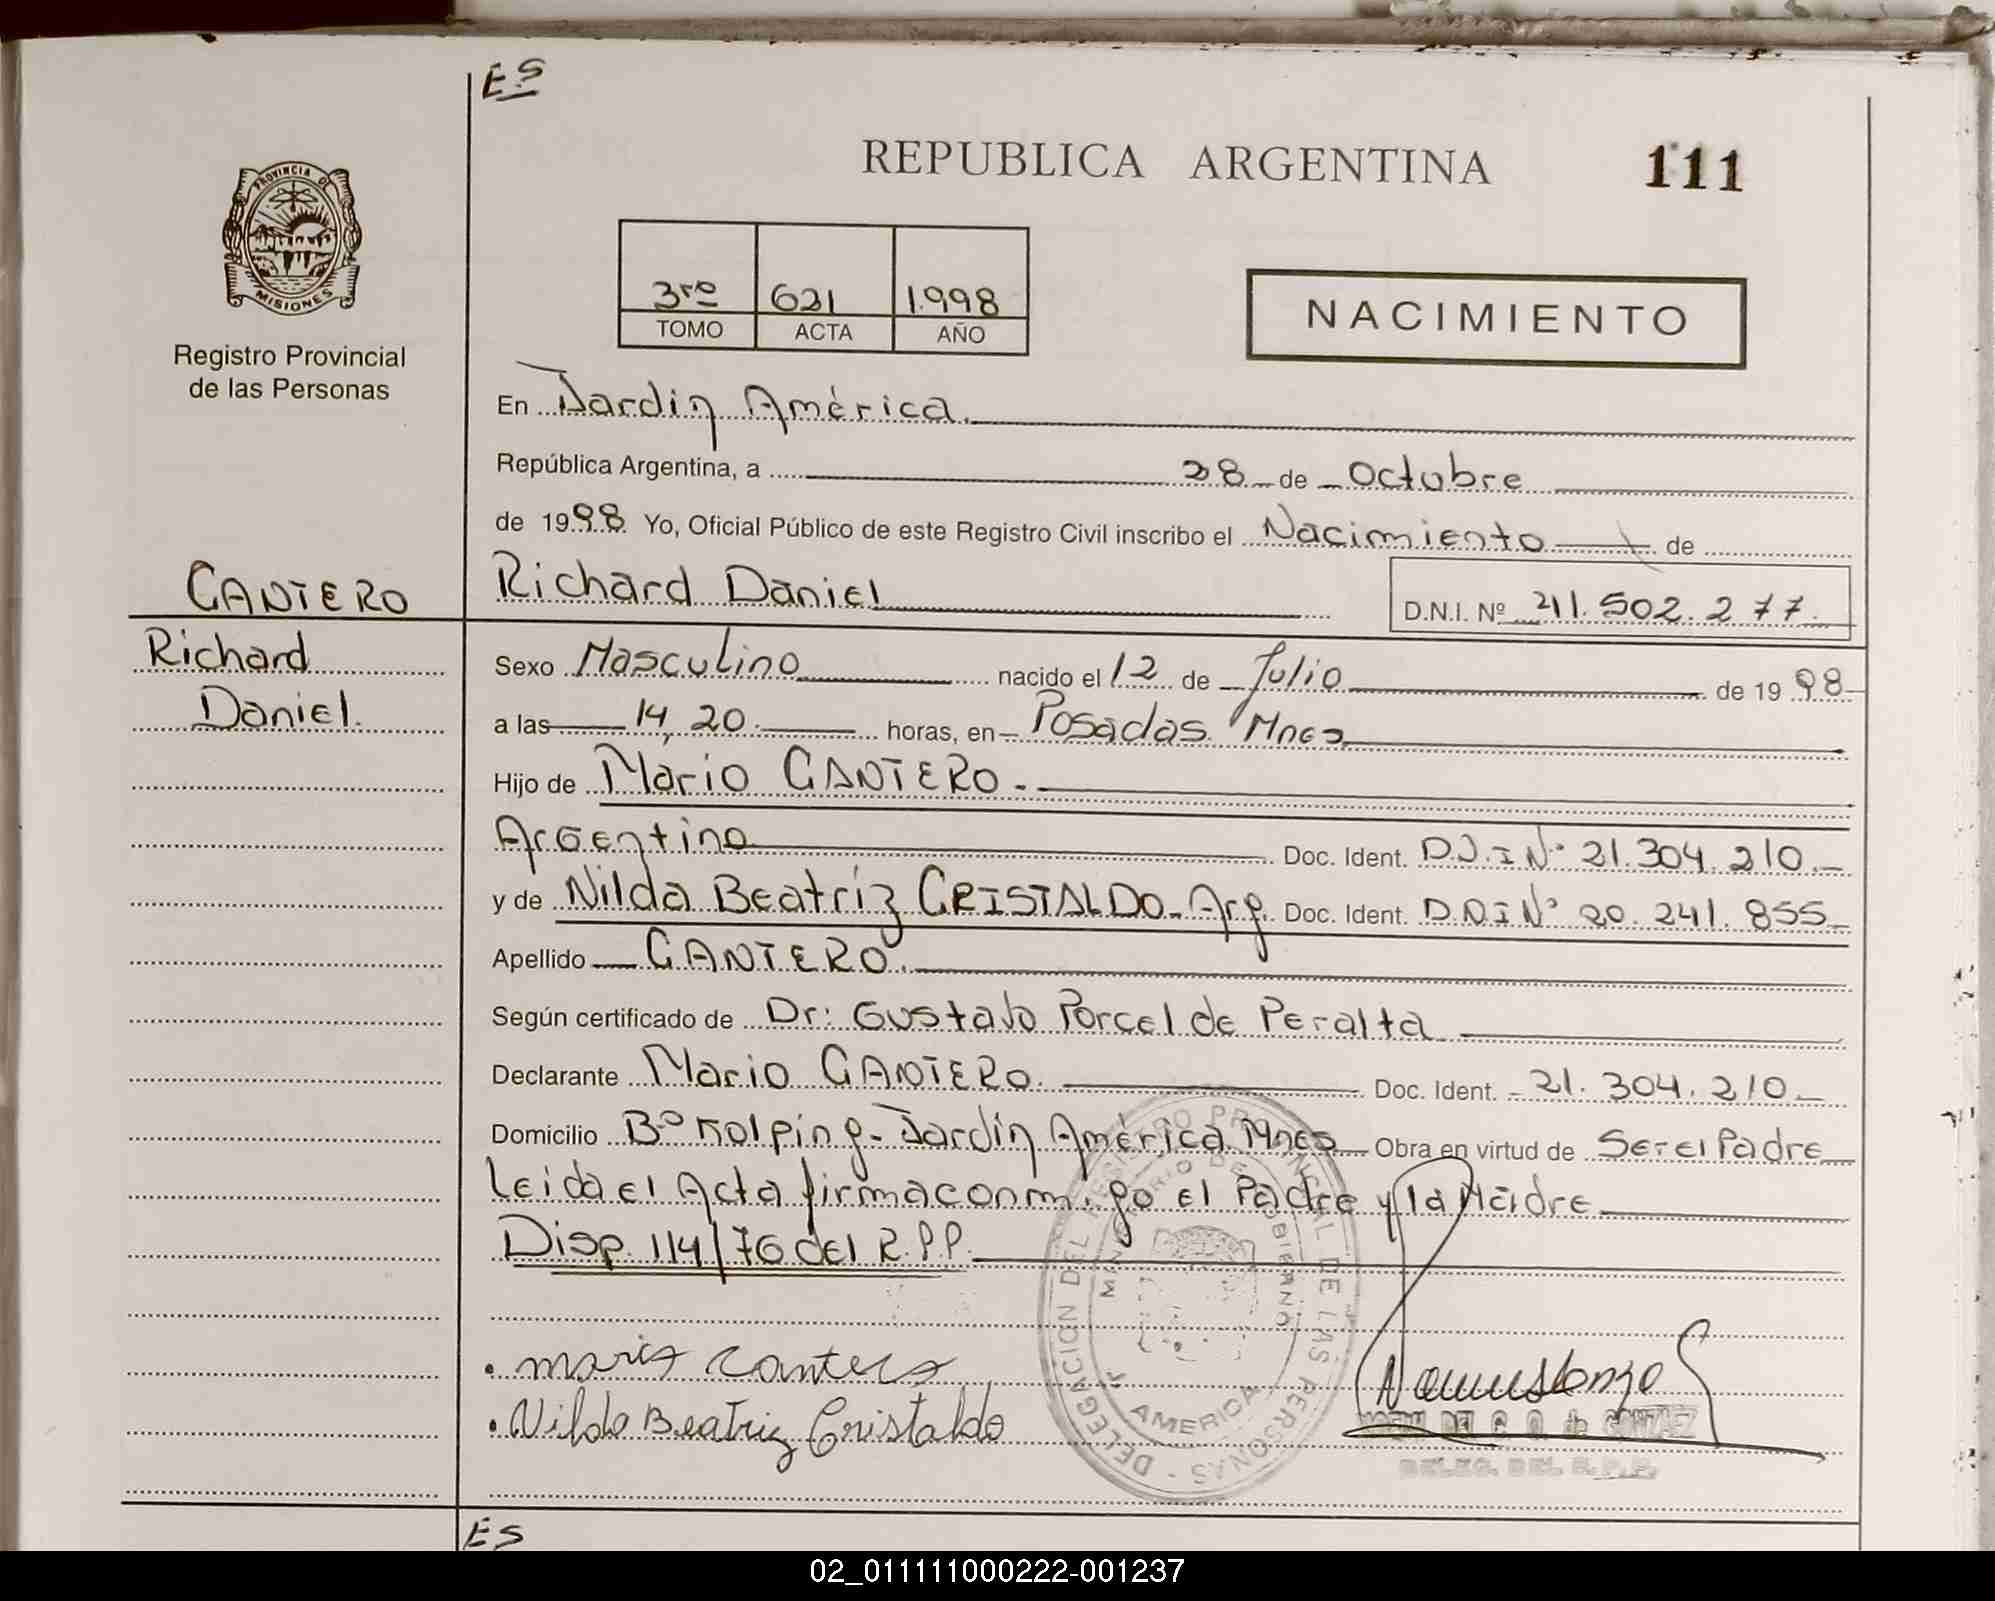 ES
REPUBLICA ARGENTINA
111
PROVINCIA DE
MISIONES
Registro Provincial
de las Personas
3ro 621 1.998
TOMO ACTA AÑO
NACIMIENTO
En Jardin América.
República Argentina, a 28 de Octubre
de 1998 Yo, Oficial Público de este Registro Civil inscribo el Nacimiento de
CANTERO
Richard Daniel
D.N.I. Nº 41.502.277.
Richard
Daniel.
Sexo Masculino nacido el 12 de Julio de 1998
a las 14,20 horas, en Posadas Mnes
Hijo de Mario CANTERO.-
Argentino Doc. Ident. D.N.I Nº 21.304.210.-
y de Nilda Beatríz CRISTALDO-Arg. Doc. Ident. D.N.I Nº 20.241.855-
Apellido CANTERO.
Según certificado de Dr: Gustavo Porcel de Peralta
Declarante Mario CANTERO. Doc. Ident. - 21.304.210-
Domicilio Bº Kolping- Jardin América Mnes Obra en virtud de Ser el Padre
Leida el Acta firma conmigo el Padre y la Madre
Disp. 114/76 del R.P.P.
DELEGACION DEL REGISTRO PROVINCIAL DE LAS PERSONAS
MINISTERIO DE GOBIERNO
AMERICA
Mario Cantero
Nilda Beatriz Cristaldo
DELEG. DEL R.P.P.
ES
02_011111000222-001237